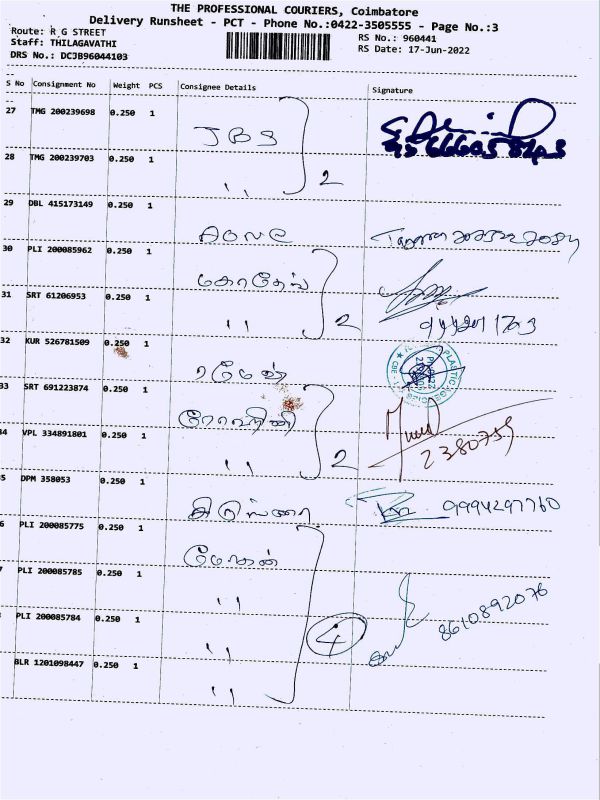 THE PROFESSIONAL COURIERS, Coimbatore
Delivery Runsheet - PCT - Phone No.:0422-3505555 - Page No.:3
Route: R G STREET
RS No.: 960441
Staff: THILAGAVATHI
RS Date: 17-Jun-2022
DRS No.: DCJB96044103
S No Consignment No Weight PCS Consignee Details Signature
27 TMG 200239698 0.250 1
JBS
28 TMG 200239703 0.250 1
,, 2
29 DBL 415173149 0.250 1
30 PLI 200085962 0.250 1
31 SRT 61206953 0.250 1
,, 2
32 KUR 526781509 0.250 1
ரமேஷ்
33 SRT 691223874 0.250 1
2380759
34 VPL 334891801 0.250 1
,, 2
35 DPM 358053 0.250 1
9994297760
6 PLI 200085775 0.250 1
மோகன்
7 PLI 200085785 0.250 1
,,
8610892076
PLI 200085784 0.250 1
4
,,
BLR 1201098447 0.250 1
,,